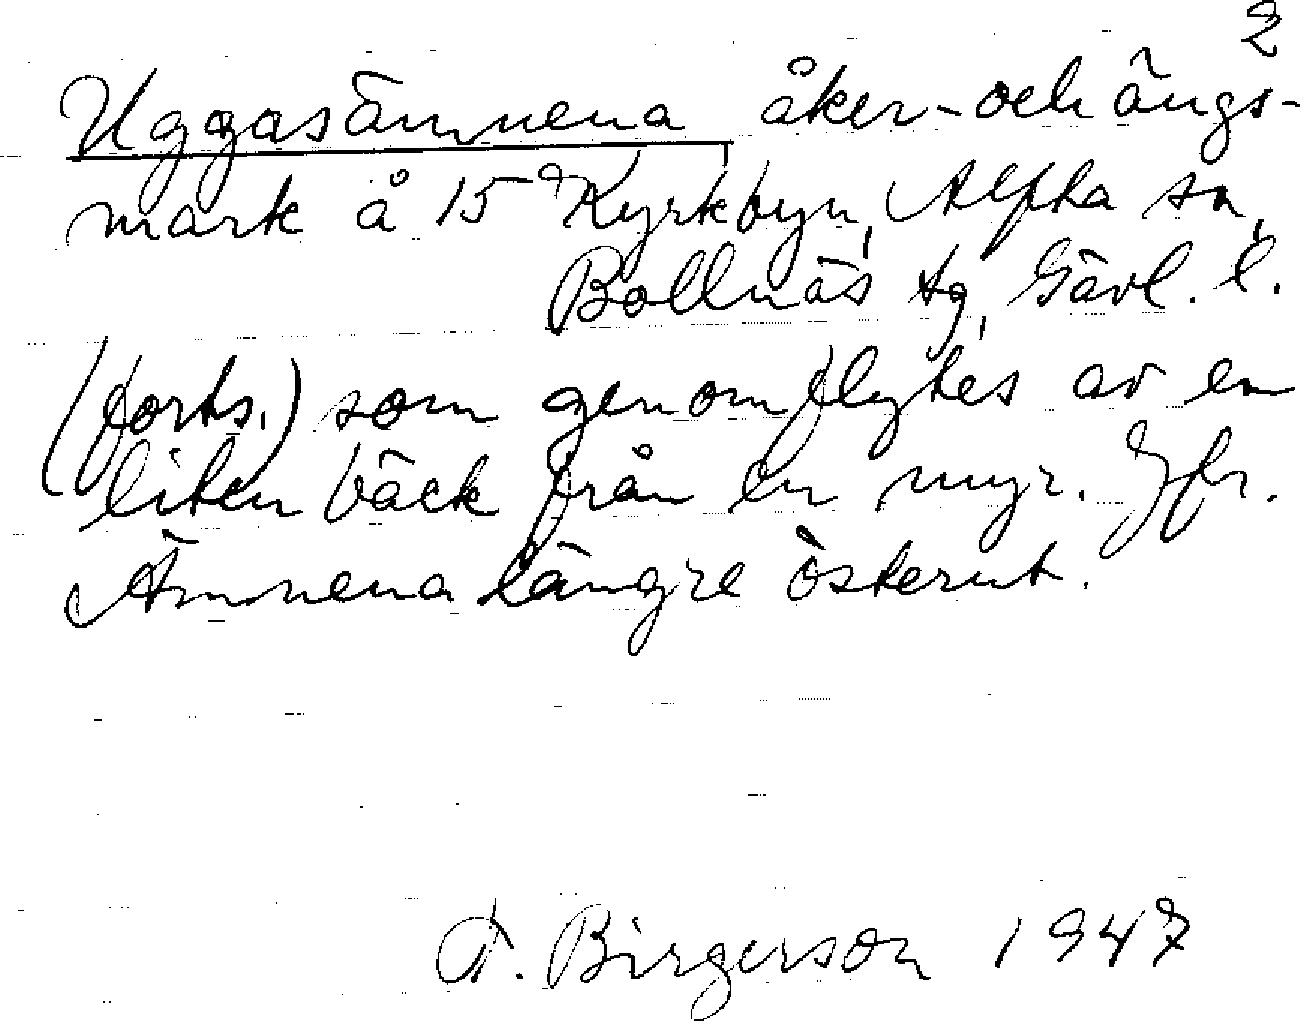 2
Uggasämnena, åker- och ängs-
mark å 15 Kyrkbyn, Alfta sn,
Bollnäs tg, Gävl. l.
(forts.) som genomflytes av en
liten bäck från en myr. Jfr.
Ämnena längre österut.
F. Birgerson 1947